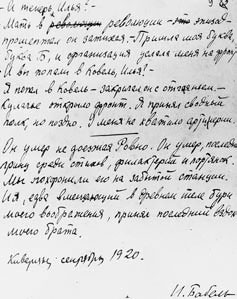 - И теперь, Илья? -
- Мать в революции - это эпизод -
прошептал он затихая. - Пришла моя буква,
буква Б, и организация услала меня на фронт
И ты попал в Ковель, Илья? -
Я попал в Ковель - закричал он с отчаянием. -
Кулачье открыло фронт. Я принял сводный
полк, но поздно. У меня не хватило артиллерии.
Он умер не доезжая Ровно. Он умер, последний
принц среди стихов, филактерий и портянок.
Мы похоронили его на забытой станции.
И я, едва вмещающий в древнем теле бури
моего воображения, принял последний вздох
моего брата.
Коверлец, сентябрь 1920.
И. Бабель